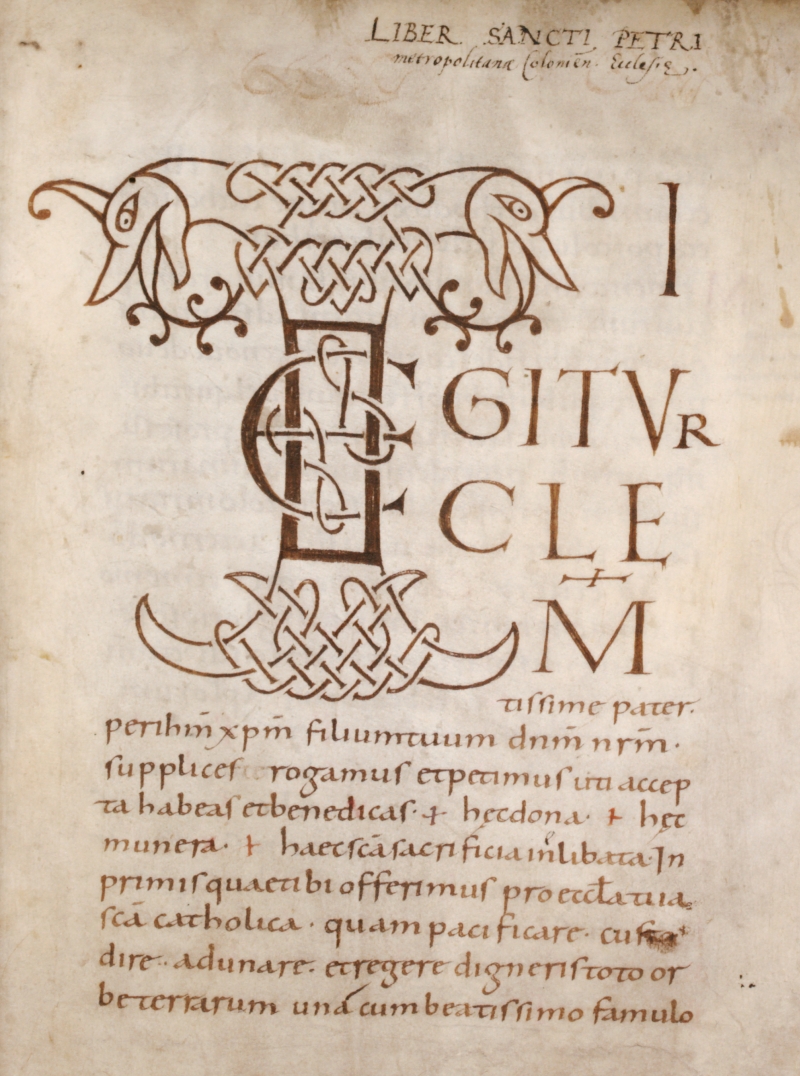 LIBER SANCTI PETRI
metropolitanæ Colonien. Ecclesię.
TE I
GITVR
CLE
M
tissime pater.
perihm̄ xpm̄ filium tuum dnm̄ nrm̄.
supplices rogamus et petimus uti accep
ta habeas et benedicas. + hęc dona. + hęc
munera. + haec scā sacrificia inlibata. In
primis quae tibi offerimus pro eccla tua
scā catholica. quam pacificare. custo
dire. adunare. et regere digneris toto or
be terrarum una cum beatissimo famulo